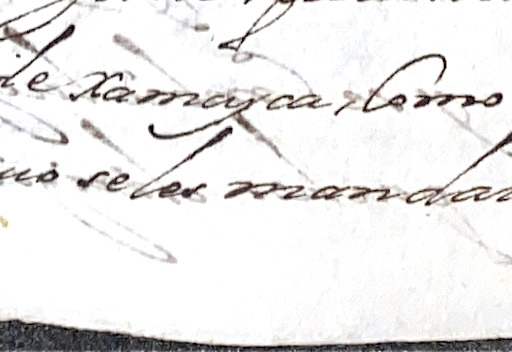 de Xamayca, Como
se les mandal